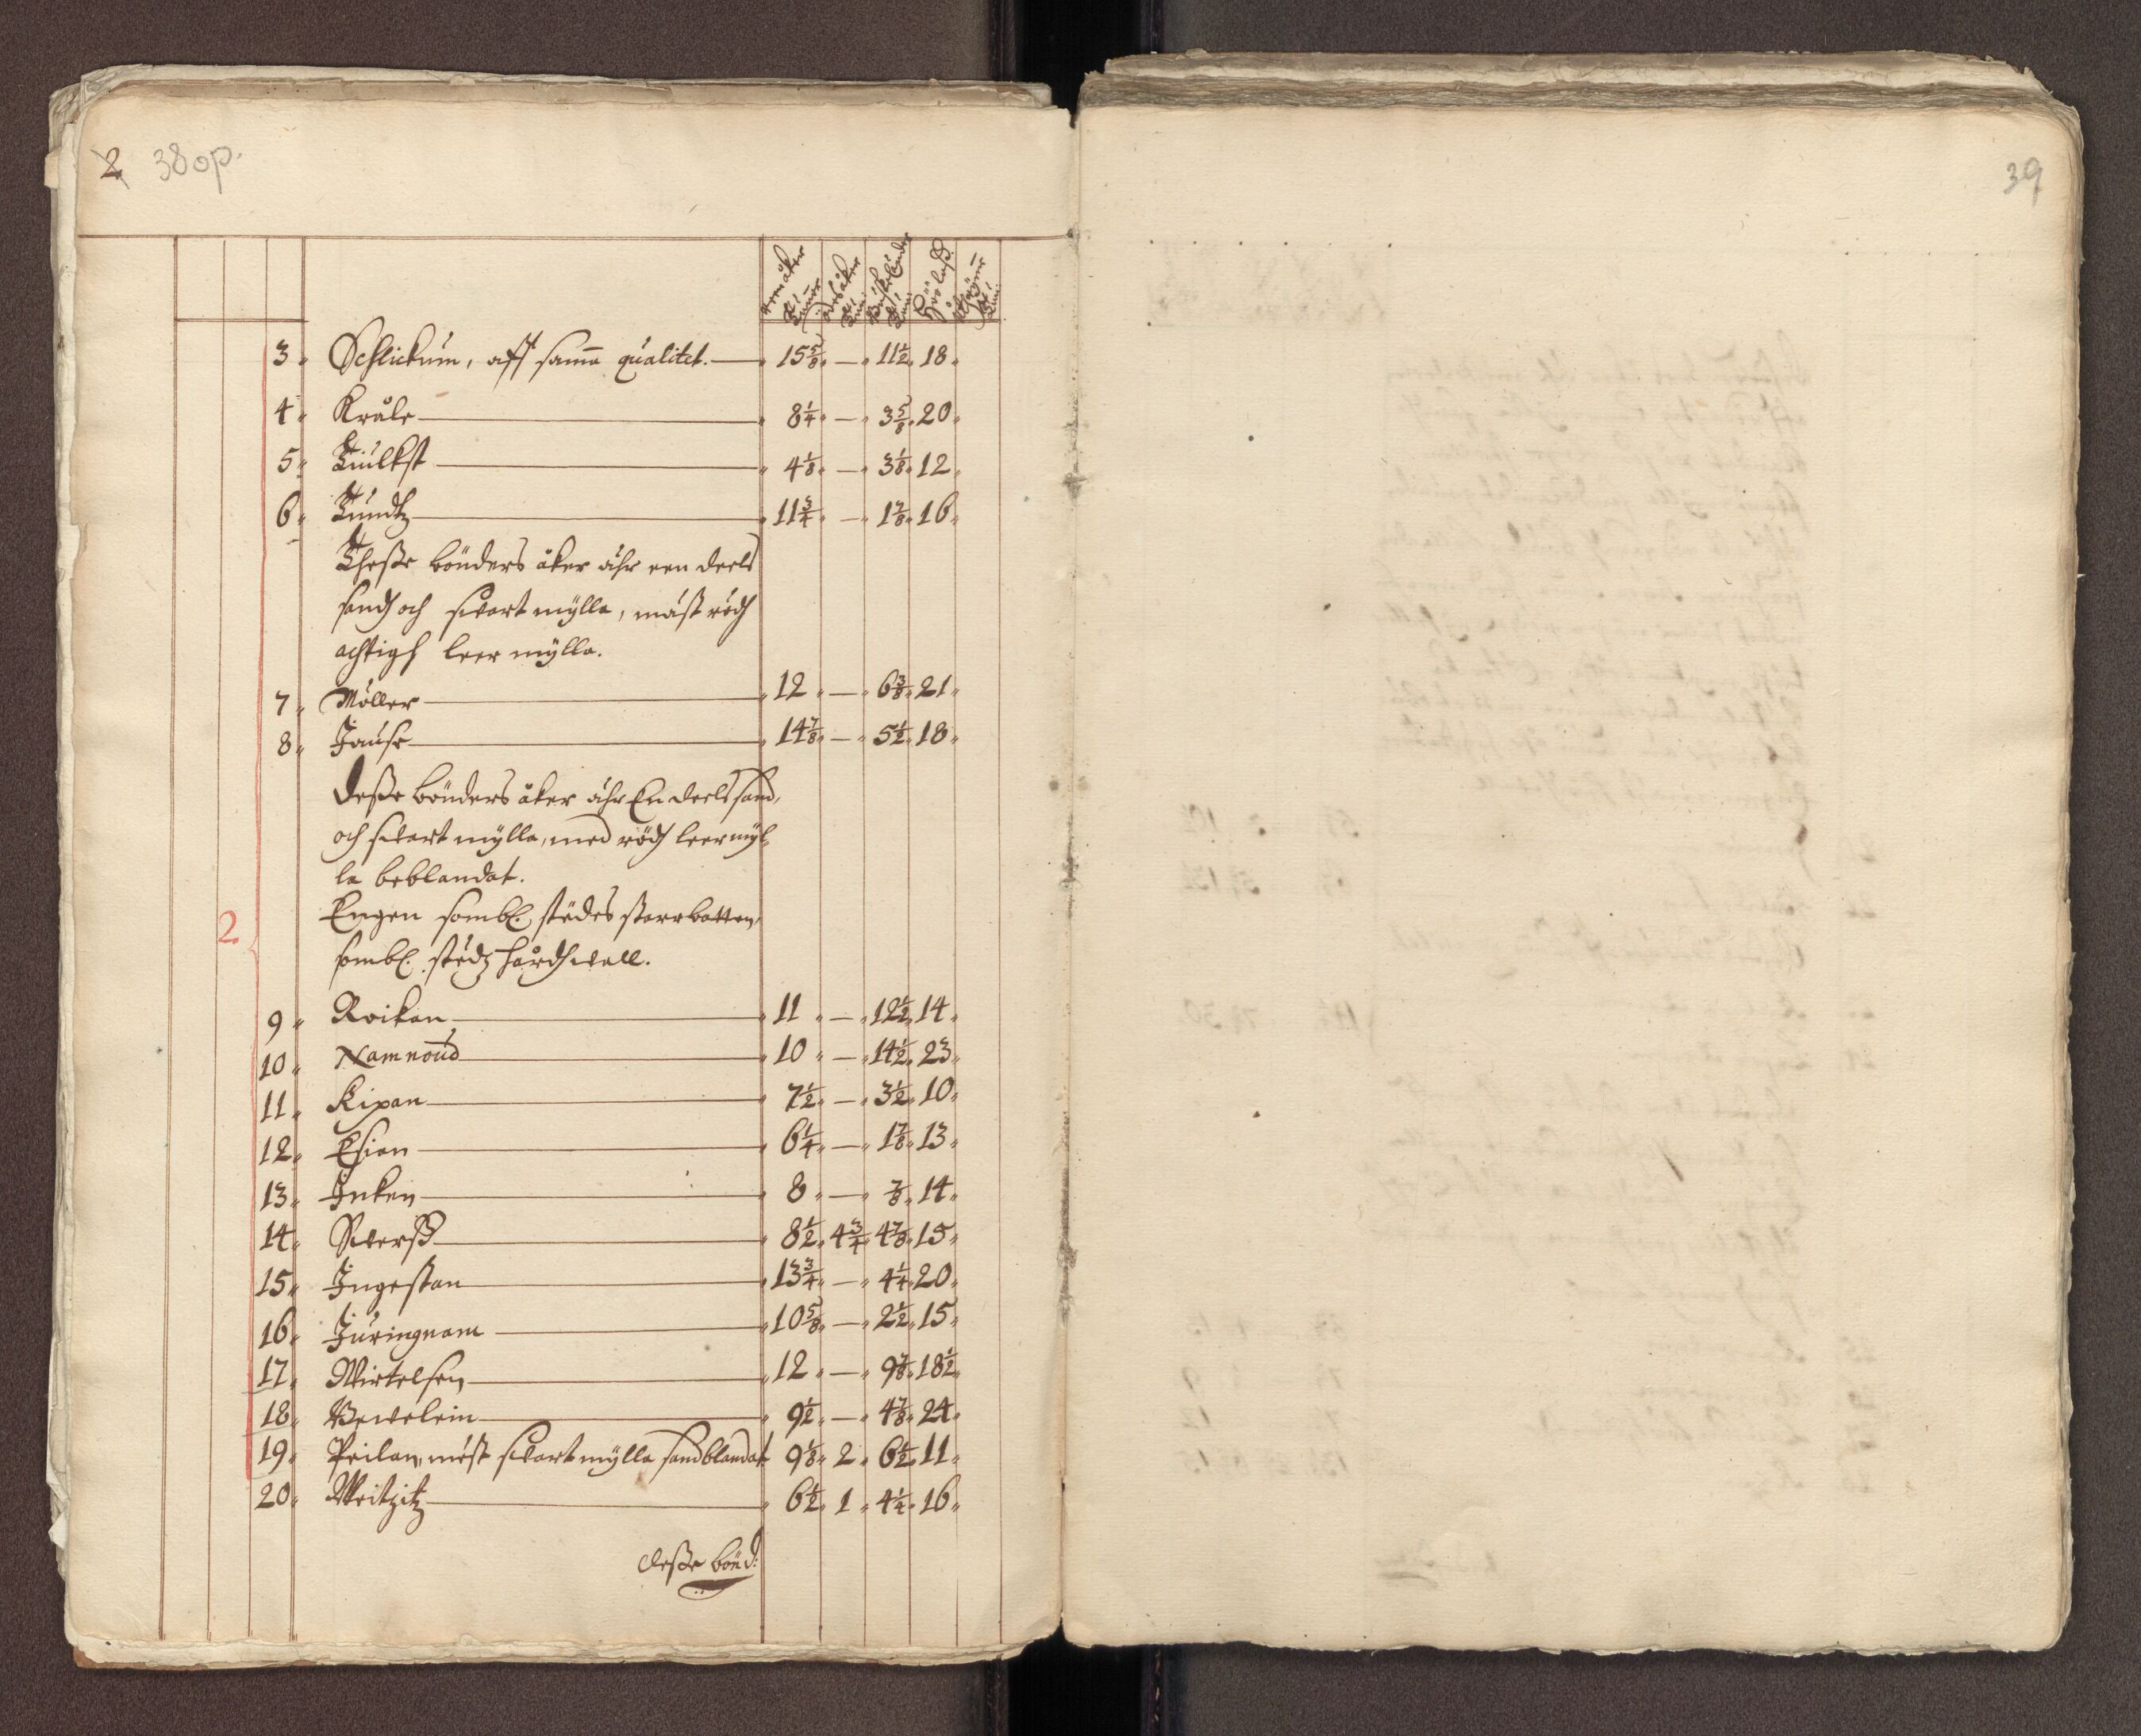 2 38op.
39
åker
Tunne
ödesåker
Tun:
Busklender
Tun:
Höö laß
Tun:
3 Schlickum, aff samma qualitet. — 15 5/8 — 11 1/2 18
4 Kråle — 8 1/4 — 3 5/8 20
5 Tiulkst — 4 1/8 — 3 1/8 12
6 Tundtz — 11 3/4 — 1 7/8 16
Theße bönders åker ähr een deels
sandh och swart mylla, mäst rödh
achtigh leer mylla.
7 Möller — 12 — 6 3/8 21
8 Jause — 14 7/8 — 5 1/2 18
Deße bönders åker ähr En deels sand,
och swart mylla, med rödh leer myl-
la beblandat.
2
Engen sombl. städes starrbotten,
sombl. städz hårdhwall.
9 Roikan — 11 — 12 1/2 14
10 Namnoud — 10 — 14 1/2 23
11 Kixan — 7 1/2 — 3 1/2 10
12 Esian — 6 1/4 — 1 7/8 13
13 Inken — 8 — 7/8 14
14 Swerß — 8 1/2 4 3/4 4 7/8 15
15 Ingestan — 13 3/4 — 4 1/4 20
16 Juringnam — 10 5/8 — 2 1/2 15
17 Wirtelsen — 12 — 9 7/8 18 1/2
18 Bewelein — 9 1/2 — 4 7/8 24
19 Peilan, mäst swart mylla sandblandat 9 1/8 2 6 1/2 11
20 Weitzitz — 6 1/2 1 4 1/4 16
deße bönd: